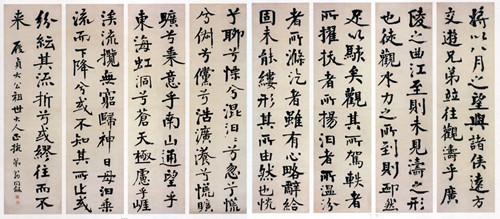 將以八月之望與諸侯遠方
交遊兄弟並往觀濤乎廣
陵之曲江至則未見濤之形
也徒觀水力之所到則卹然
足以駭矣觀其所駕軼者
所擢拔者所揚汩者所溫汾
者所滌汔者雖有心略辭給
固未能縷形其所由然也怳
兮聊兮慄兮混汩汩兮忽兮慌
兮俶兮儻兮浩瀇瀁兮慌
曠兮秉意乎南山通望乎
東海虹洞兮蒼天極慮乎崖
涘流攬無窮歸神日母汩乘
流而下降兮或不知其所止或
紛紜其流折兮或繆往而不
來
貞大公祖世大人正 弟翁同龢